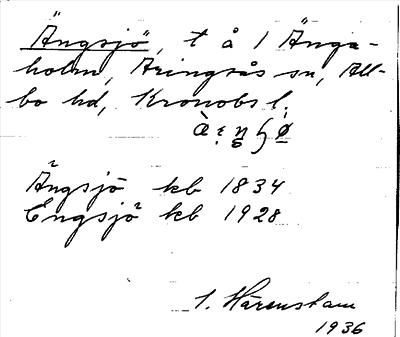 Ängsjö, t å / Änga-
holm, Aringsås sn, All-
bo hd, Kronobs l.
Ängsjö kb 1834
Engsjö kb 1928
1936